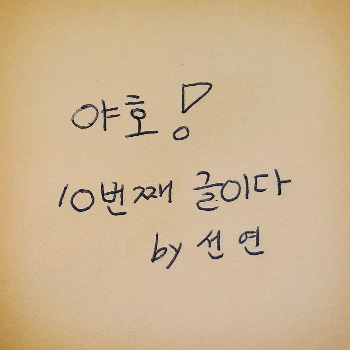 야호!
10번째 글이다
by 선연